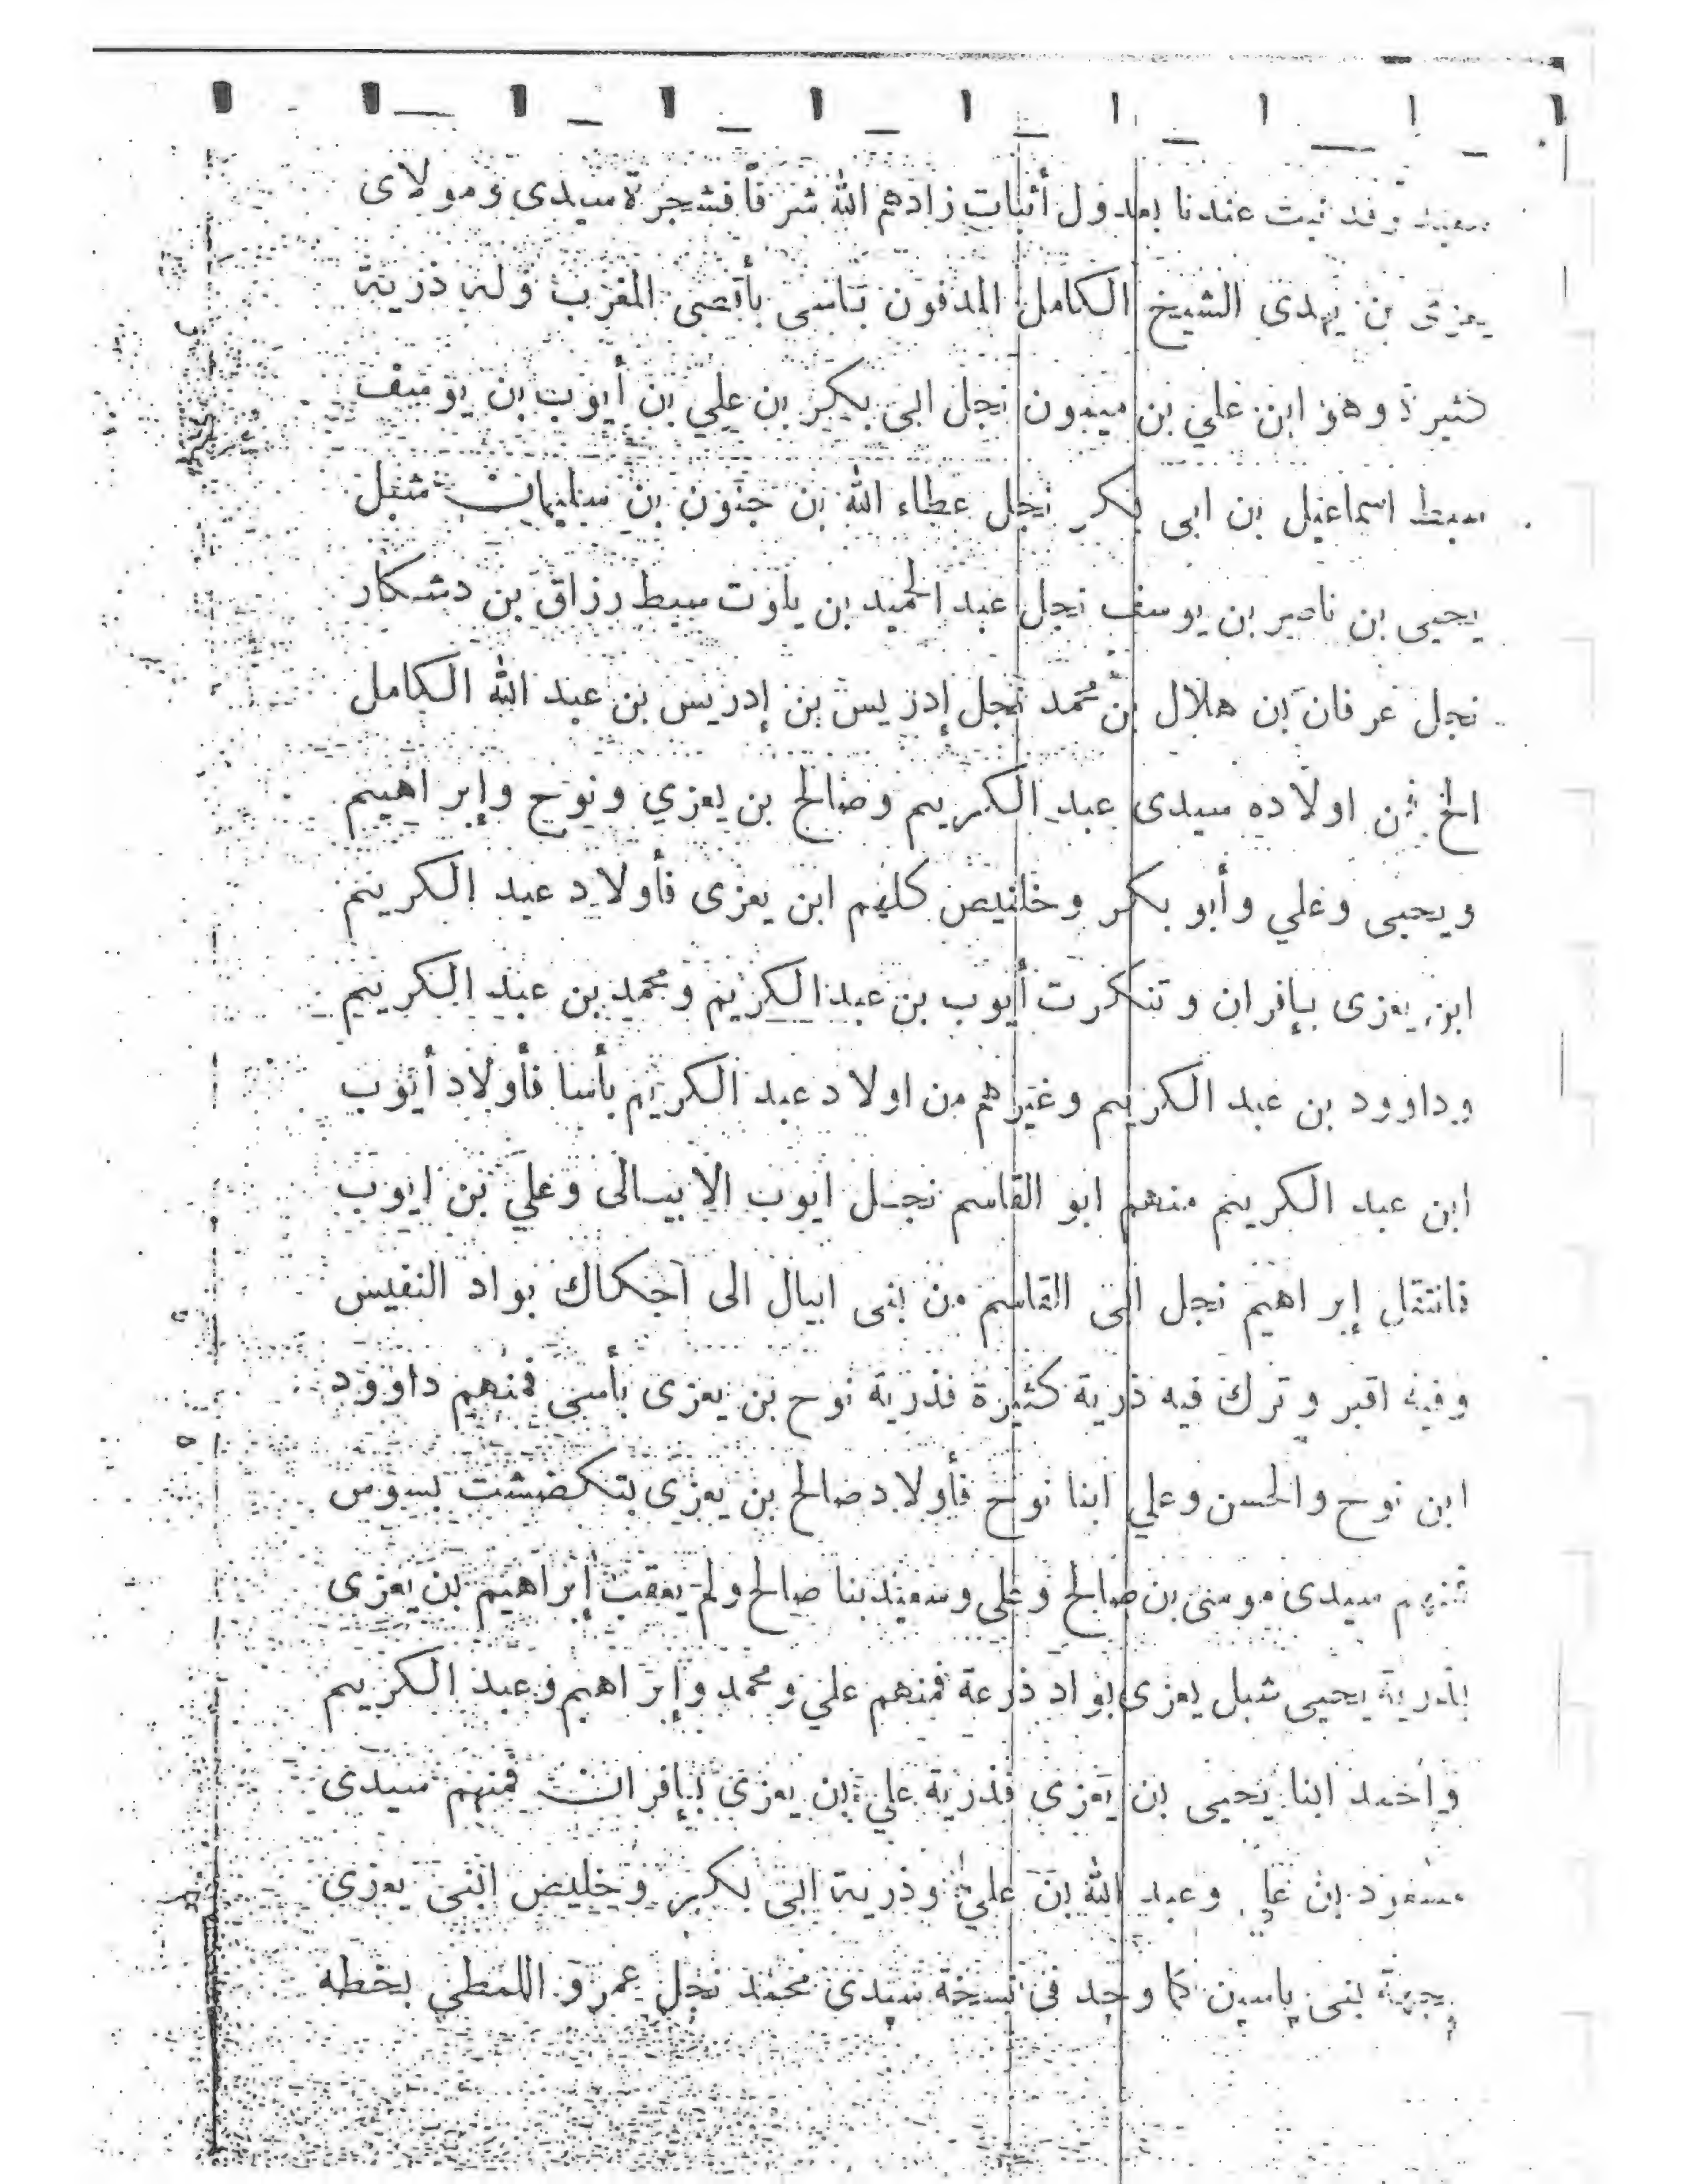 سعيد وقد ثبت عندنا بعدول أثبات زادهم الله شرفا فشجرة سيدى ومولاى
يعزى بن يهدى الشيخ الكامل المدفون بتاسى بأقصى المغرب وله ذرية
كثيرة وهو ابن علي بن ميمون نجل ابى بكر بن علي بن أيوب بن يوسف
سبط اسماعيل بن ابى بكر نجل عطاء الله بن جنون بن سليمان شبل
يحيى بن ناصر بن يوسف نجل عبد الحميد بن يلوت سبط رزاق بن دشكار
نجل عرفان بن هلال بن محمد نجل إدريس بن إدريس بن عبد الله الكامل
الخ فمن اولاده سيدى عبد الكريم وصالح بن يعزي ونوح وإبراهيم
ويحيى وعلي وأبو بكر وخليص كلهم ابن يعزى فأولاد عبد الكريم
ابن يعزى بإفران وتنكرت أيوب بن عبد الكريم ومحمد بن عبد الكريم
وداوود بن عبد الكريم وغيرهم من اولاد عبد الكريم بأسا فأولاد أيوب
ابن عبد الكريم منهم ابو القاسم نجل ايوب الابيالى وعلي بن ايوب
فانتقل إبراهيم نجل ابى القاسم من بنى ابيال الى اجكاك بواد النفيس
وفيه اقبر وترك فيه ذرية كثيرة فذرية نوح بن يعزى بأسى فمنهم داوود
ابن نوح والحسن وعلي ابنا نوح فأولاد صالح بن يعزى بتكضشت بسوس
فمنهم سيدى موسى بن صالح وعلى وسعيد بنا صالح ولم يعقب إبراهيم بن يعزى
فذرية يحيى شبل يعزى بواد ذرعة فمنهم علي ومحمد وإبراهيم وعبد الكريم
واحمد ابنا يحيى بن يعزى فذرية علي بن يعزى بإفران فمنهم سيدى
مسعود بن علي وعبد الله بن علي وذرية ابى بكر وخليص ابنى يعزى
بجهة بنى ياسين كما وجد فى نسخة سيدى محمد نجل عمرو اللمطي بخطه